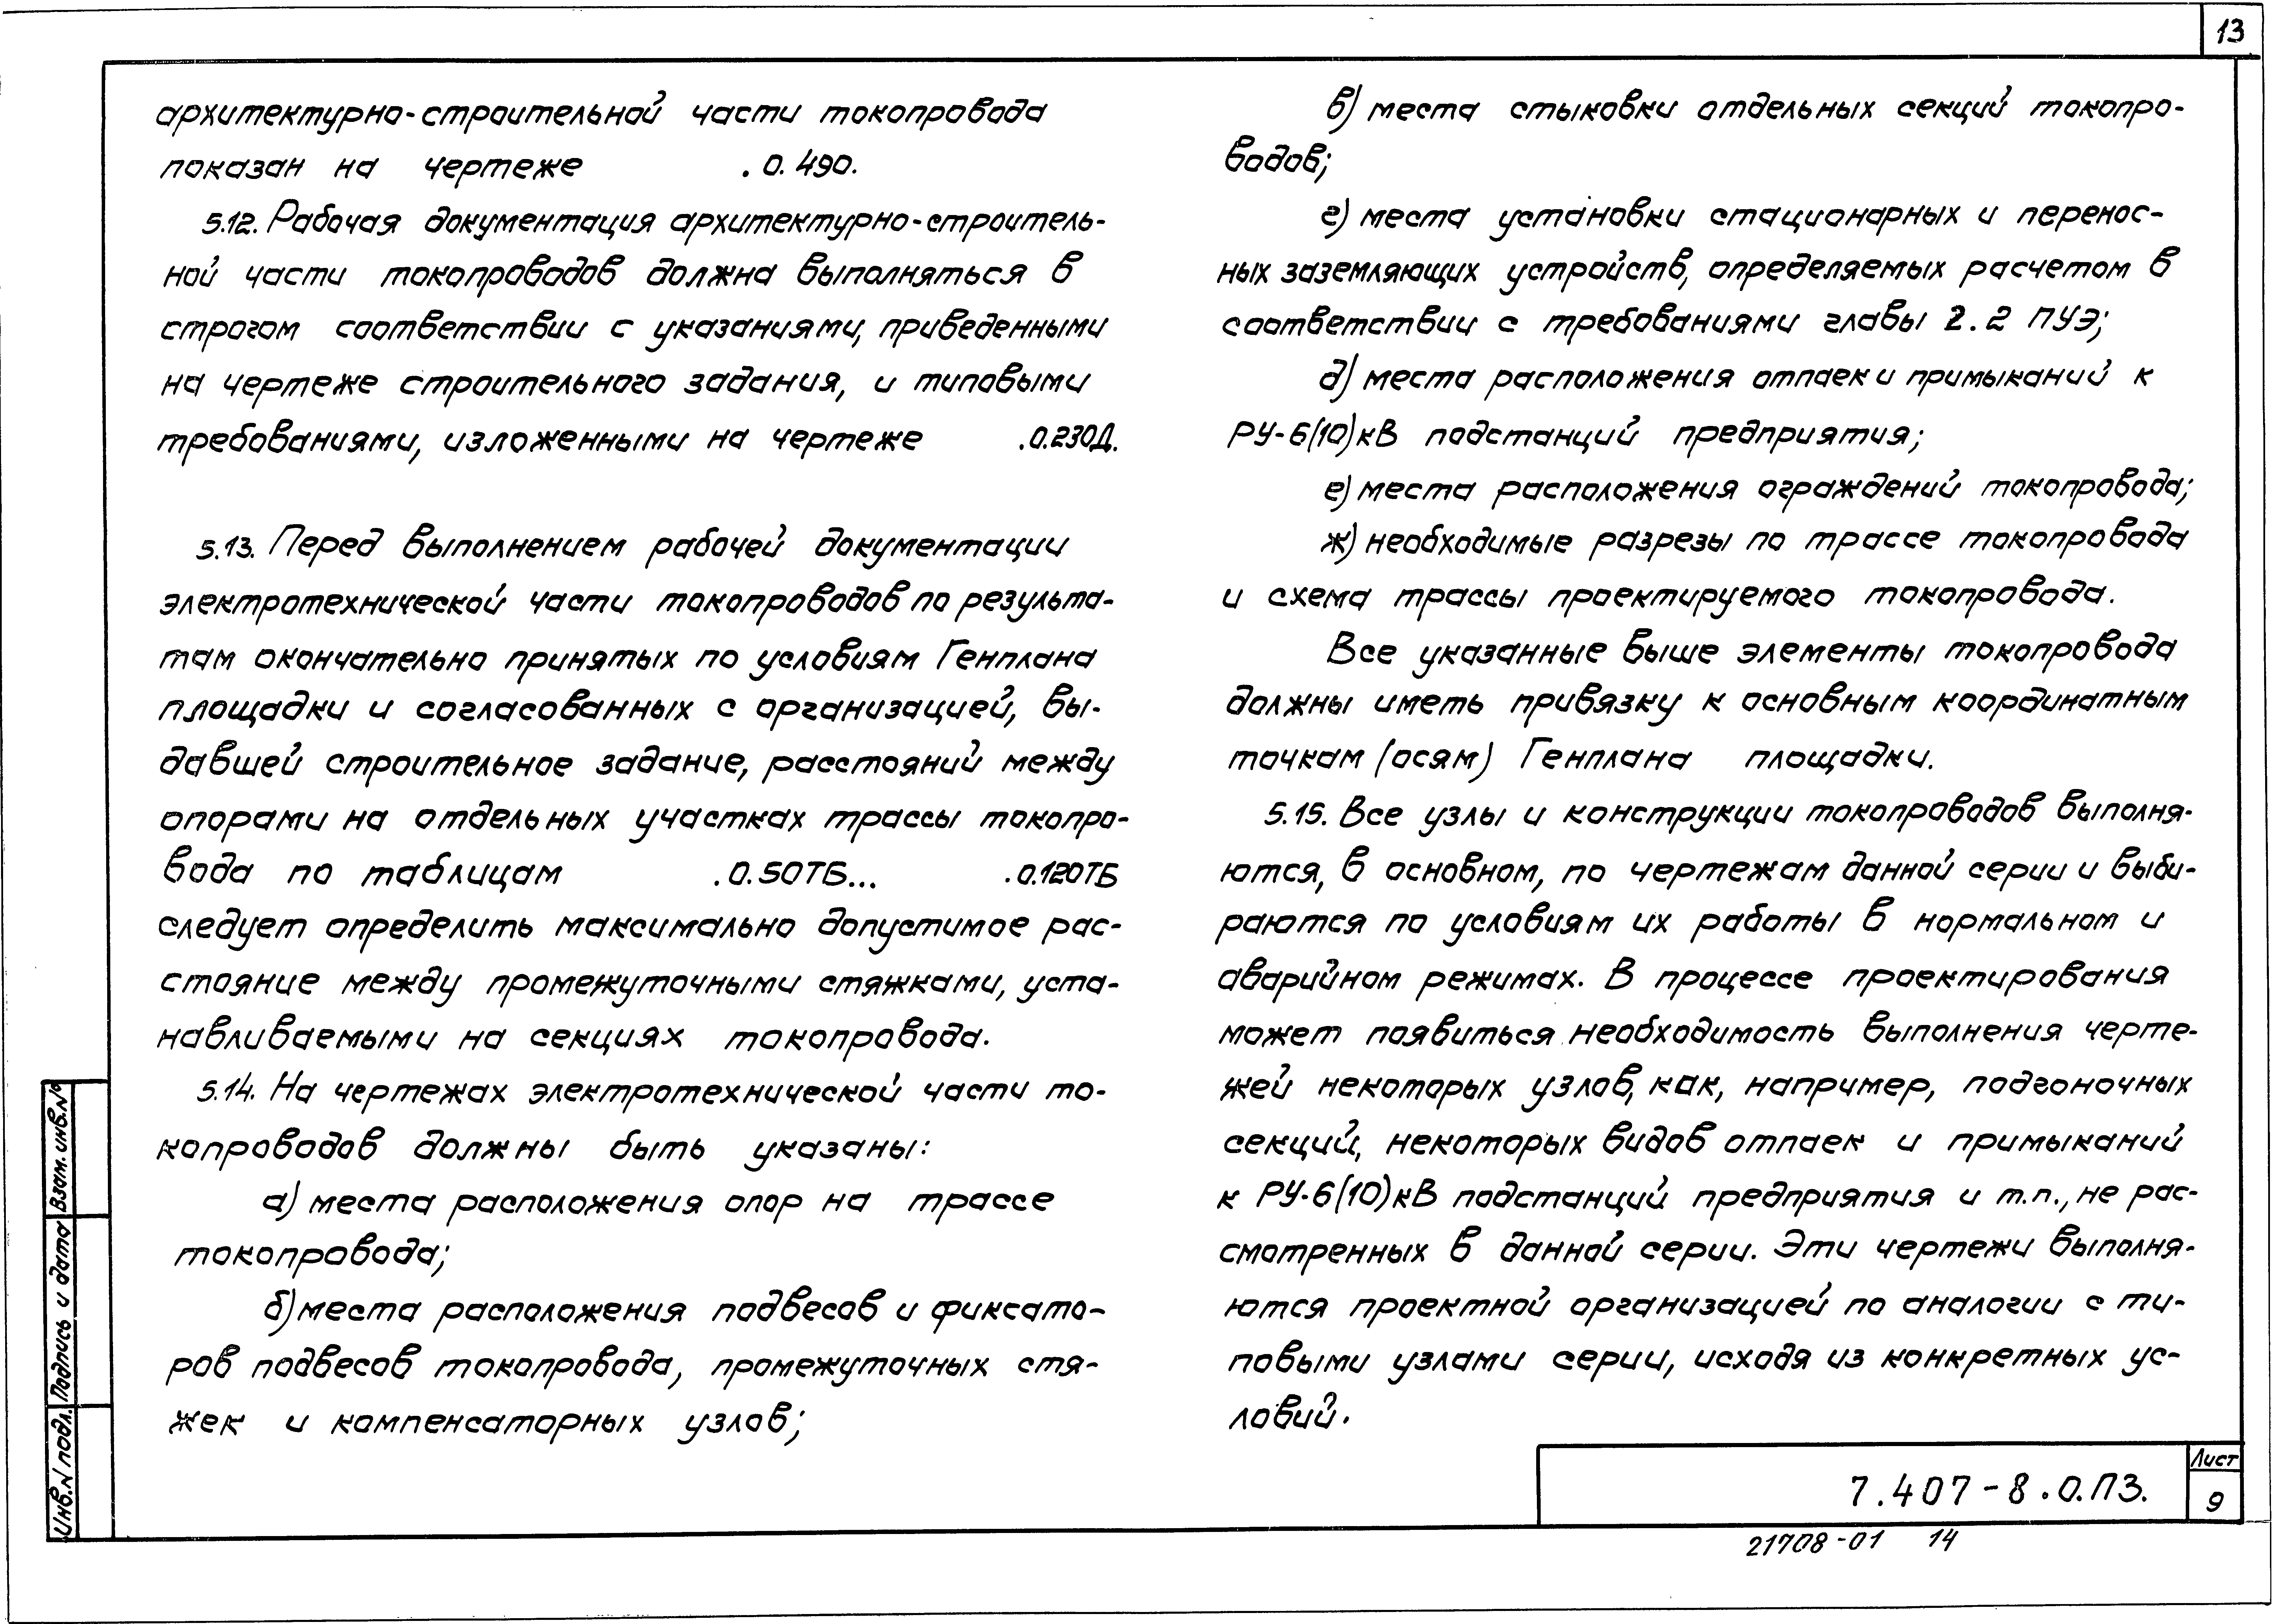 13
архитектурно-строительной части токопровода
показан на чертеже .0.490.
5.12. Рабочая документация архитектурно-строитель-
ной части токопроводов должна выполняться в
строгом соответствии с указаниями, приведенными
на чертеже строительного задания, и типовыми
требованиями, изложенными на чертеже .0.230Д.
5.13. Перед выполнением рабочей документации
электротехнической части токопроводов по результа-
там окончательно принятых по условиям Генплана
площадки и согласованных с организацией, вы-
давшей строительное задание, расстояний между
опорами на отдельных участках трассы токопро-
вода по таблицам .0.50ТБ... .0.120ТБ
следует определить максимально допустимое рас-
стояние между промежуточными стяжками, уста-
навливаемыми на секциях токопровода.
5.14. На чертежах электротехнической части то-
копроводов должны быть указаны:
а) места расположения опор на трассе
токопровода;
б) места расположения подвесов и фиксато-
ров подвесов токопровода, промежуточных стя-
жек и компенсаторных узлов;
в) места стыковки отдельных секций токопро-
водов;
г) места установки стационарных и перенос-
ных заземляющих устройств, определяемых расчетом в
соответствии с требованиями главы 2.2 ПУЭ;
д) места расположения отпаек и примыканий к
РУ-6(10)кВ подстанций предприятия;
е) места расположения ограждений токопровода;
ж) необходимые разрезы по трассе токопровода
и схема трассы проектируемого токопровода.
Все указанные выше элементы токопровода
должны иметь привязку к основным координатным
точкам (осям) Генплана площадки.
5.15. Все узлы и конструкции токопроводов выполня-
ются, в основном, по чертежам данной серии и выби-
раются по условиям их работы в нормальном и
аварийном режимах. В процессе проектирования
может появиться необходимость выполнения черте-
жей некоторых узлов, как, например, подгоночных
секций, некоторых видов отпаек и примыканий
к РУ-6(10)кВ подстанций предприятия и т.п., не рас-
смотренных в данной серии. Эти чертежи выполня-
ются проектной организацией по аналогии с ти-
повыми узлами серии, исходя из конкретных ус-
ловий.
Взам. инв.№
Подпись и дата
Инв.N подл.
7.407-8.0.ПЗ.
Лист
9
21708-01 14